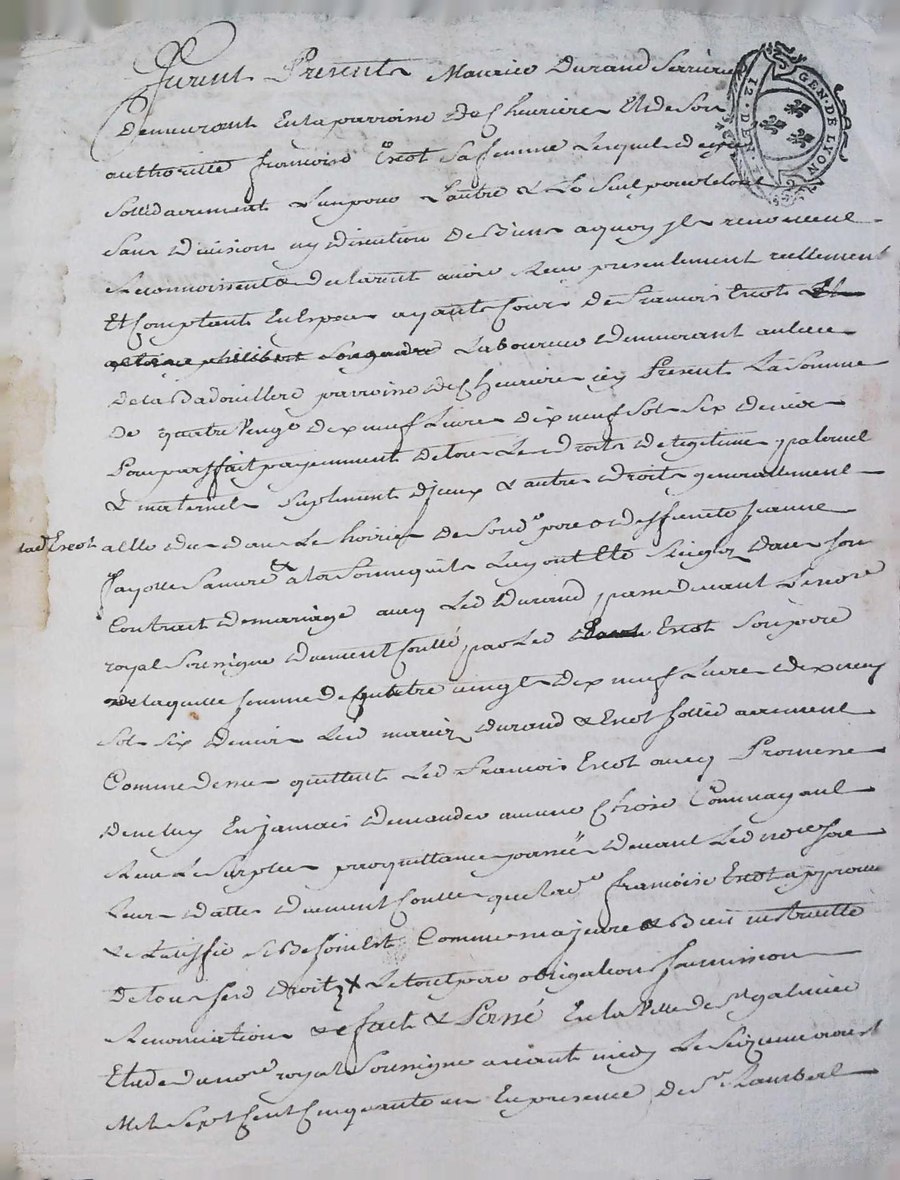 Furent Presents Maurice Durand Serrurier
GEN. DE LYON
12. DEN.
Demeurant En la parroisse de Chevrieres Et de Son
authoritté francoise Escot Sa femme Lesquels de gré
Sollidairement L'un pour L'autre & Le Seul pour le tout
Sans division ny discution de Biens a quoy jls renoncent
Reconnoissent & declarent avoir Receu presentement reellement
Et Comptant En Especes ayants Cours de francois Escot
philibert Laboureur demeurant au lieu
de la Badouillere parroisse de Chevrieres jcy Present La Somme
De quatre Vengt dix neuf Livres dix neuf Sols Six deniers
Pour parffait payemment de tous Les droits de legitime paternel
& maternel Suplement d'jceux & autres droits generallement
lad Escot
a Elle dus dans Les hoiries de Sond pere & de deffunte jeanne
fayolle Sa mere & a la Somme qu'ils Luy ont Eté dans Son
Contrat de mariage avec Led Durand passé devant Le no.re
royal Soussigné duement Conllé par Led Escot Son pere
de laquelle Somme de quattre vingt dix neuf Livres dix neuf
Sols Six deniers Led mariez durand & Escot Sollidairement
Comme dessus quittent Led francois Escot avec Promesse
De ne luy En jamais demander aucune Chose Comme ayant
Receu Le Surplus par quittance devant Led no.re
Leurs dattes duement Conllés que lad.e francoise Escot approuve
& Ratiffie Si Besoin Est Comme majeure & Bien instruitte
De tous Sesd droits & Le tout par obligation Soumission
Renonciation & Effait & Passé En la Ville de St galmier
Etude du no.re royal Soussigné avant midy Le Seizieme aoust
Mil Sept Cent Cinquante un En presence de Sr. Rambert